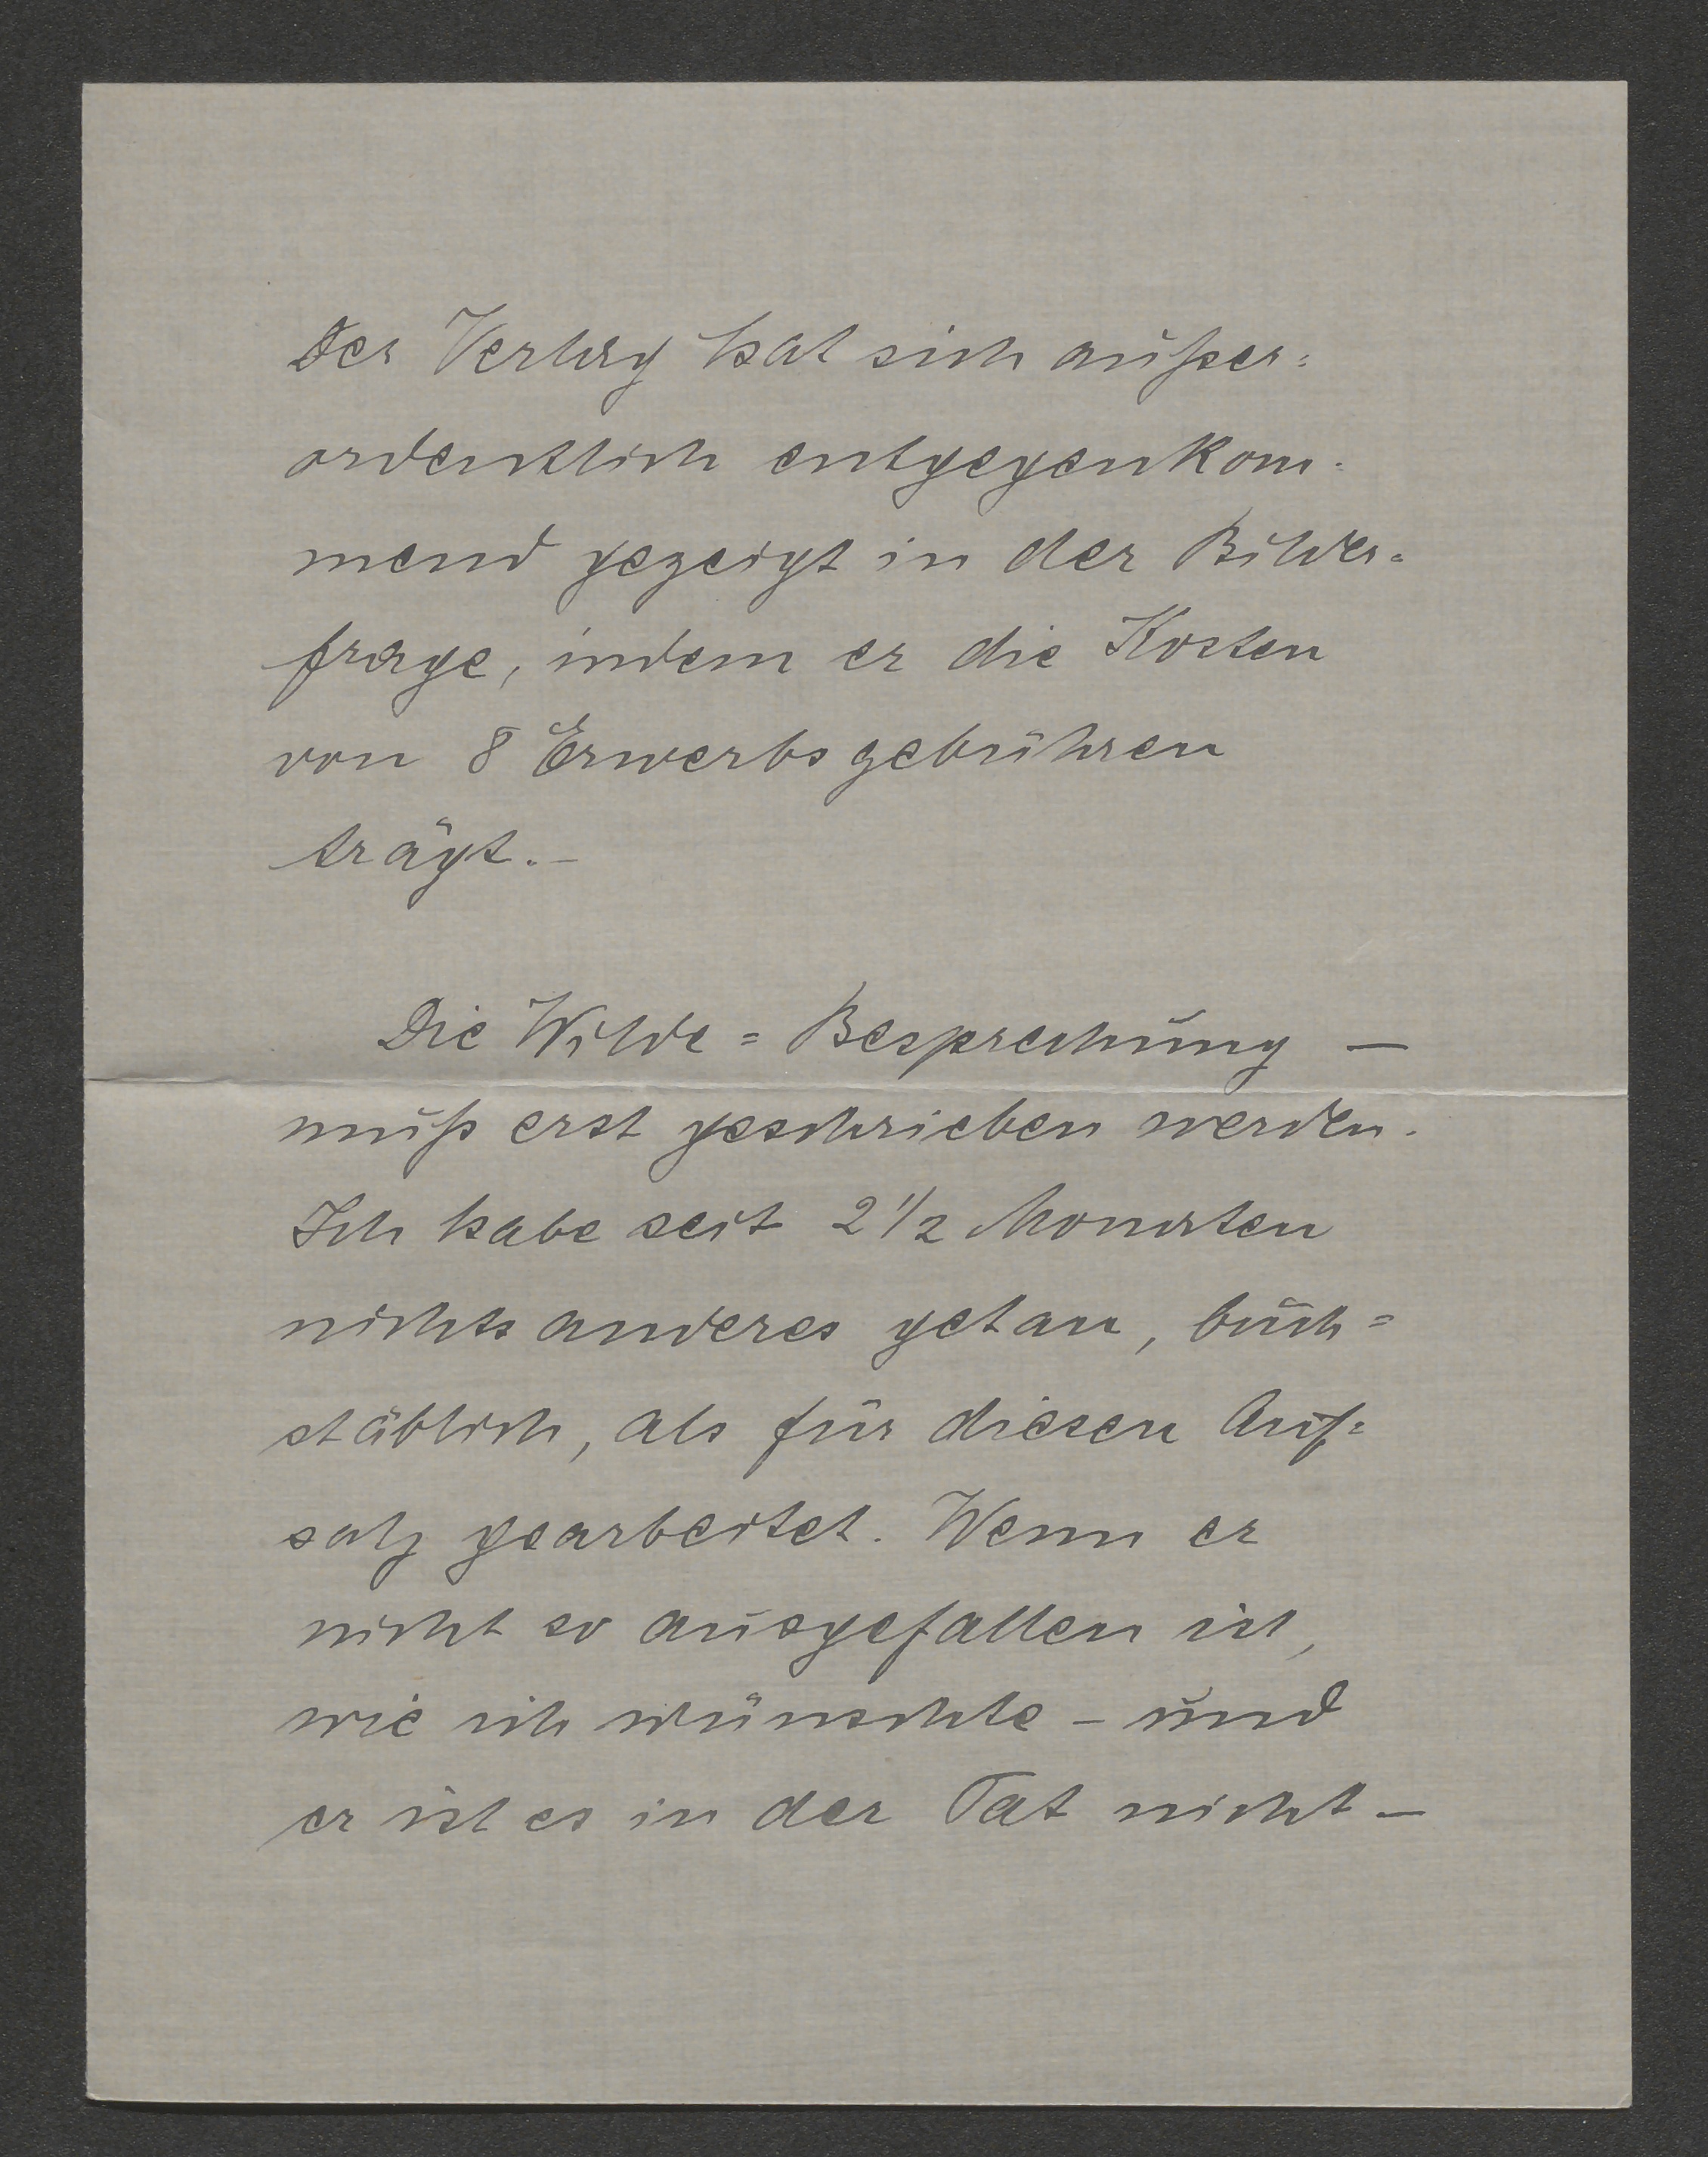 Der Verlag hat sich außer=
ordentlich entgegenkom=
mend gezeigt in der Bilder=
frage, indem er die Kosten
von 8 Erwerbsgebühren
trägt. –
Die Wilde = Besprechung –
muß erst geschrieben werden.
Ich habe seit 2 1/2 Monaten
nichts anderes getan, buch=
stäblich, als für diesen Auf=
satz gearbeitet. Wenn er
nicht so ausgefallen ist,
wie ich wünschte – und
er ist es in der Tat nicht –